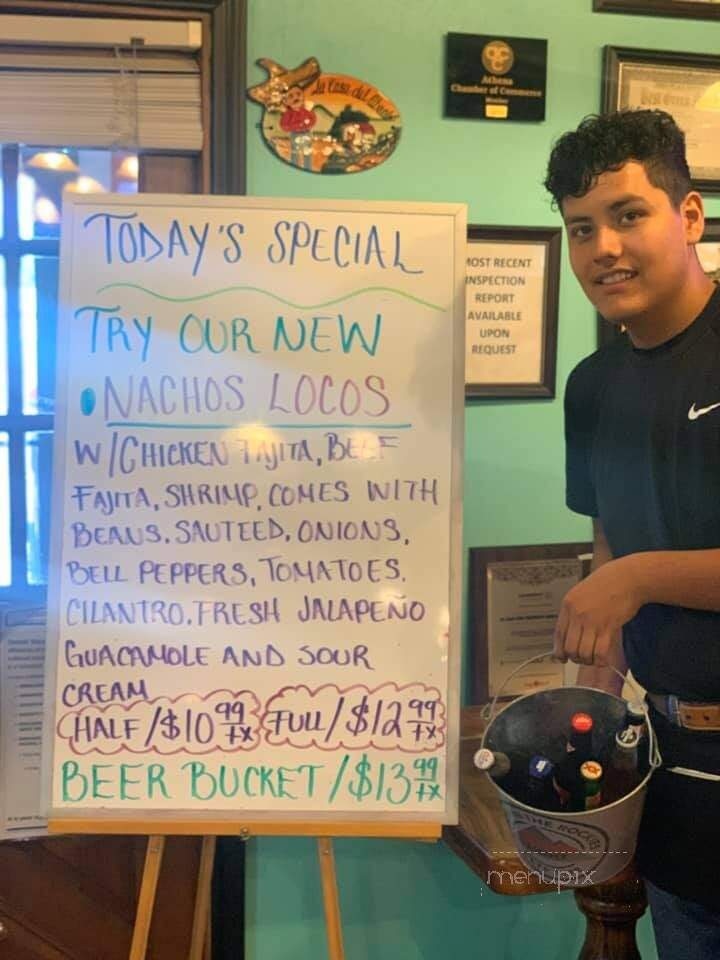 La Casa del
Athens
Chamber of Commerce
Member
MOST RECENT
INSPECTION
REPORT
AVAILABLE
UPON
REQUEST
TODAY'S SPECIAL
TRY OUR NEW
• NACHOS LOCOS
W/CHICKEN FAJITA, BEEF
FAJITA, SHRIMP, COMES WITH
BEANS. SAUTEED. ONIONS,
BELL PEPPERS, TOMATOES.
CILANTRO. FRESH JALAPEÑO
GUACAMOLE AND SOUR
CREAM
HALF/$10 99 TX FULL/$12 99 TX
BEER BUCKET/$13 99 TX
THE ROCK
menupix